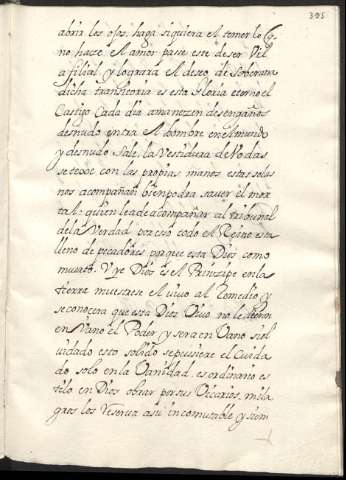 395
abria los ojos, haga siquiera el temer lo q̃
no hacce el Amor, pase este deser Vil
a filial, y lograra el deseo, de Soberana
dicha, transitoria es esta Gloria eterno el
Castigo Cada dia amanezen desengaños
desnudo entra el hombre en el mundo
y desnudo sale, la Vestidura de Vodas
se texe con las propias manos estas solas
nos acompañan bien podra saver el mor
tal, quien leade acompañar al tribunal
dela Verdad, por esso todo el Reino esta
lleno de pecadores porque esta Dios como
muerto. Vize Dios es el Prinzipe en la
tierra muestrese el vivo al Remedio y
se conocera que esta Dios Vivo no le dieron
en Vano el Poder, y sera en Vano si ol
uidado esto solido se pusiere el Cuida
do solo en la Vanidad, es ordinario es
tilo en Dios obrar por sus Vicarios, mila
gros los reserva assi incomutable y siem